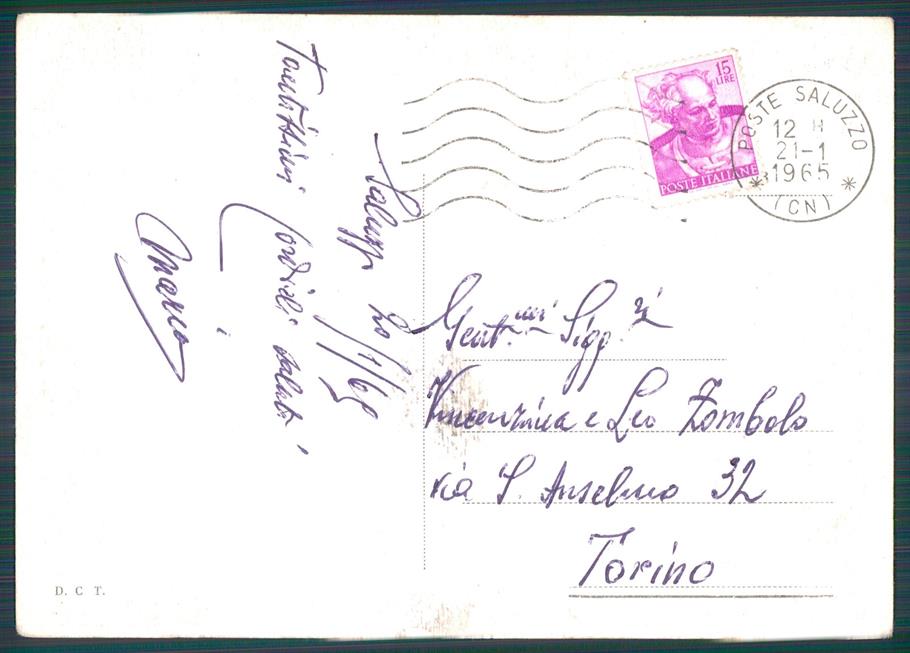 Saluzzo 20/1/65
Tantissimi cordiali saluti
Mario
15
LIRE
POSTE ITALIANE
POSTE SALUZZO
12 H
21-1
1965
(CN)
Gent.mi Sigg.ri
Vincenzina e Leo Zombolo
via S. Anselmo 32
Torino
D. C T.